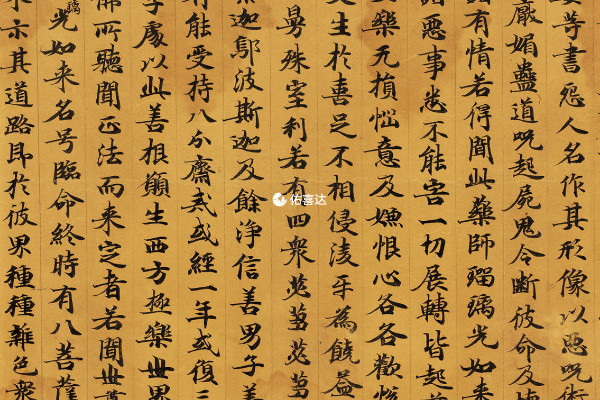 等書怨人名作其形像以惡呪術
厭媚蠱道呪起屍鬼令斷彼命及
有情若得聞此藥師瑠璃光如來
惡事悉不能害一切展轉皆起
樂无損惱意及嫌恨心各各歡
生於喜足不相侵淩互為饒益
曼殊室利若有四衆苾芻苾芻
迦鄔波斯迦及餘淨信善男子善
有能受持八分齋戒或經一年或復三
學處以此善根願生西方極樂世界
佛所聽聞正法而未定者若聞世
璃光如来名号臨命終時有八菩薩
示其道路即於彼界種種雜色衆
佑喜达